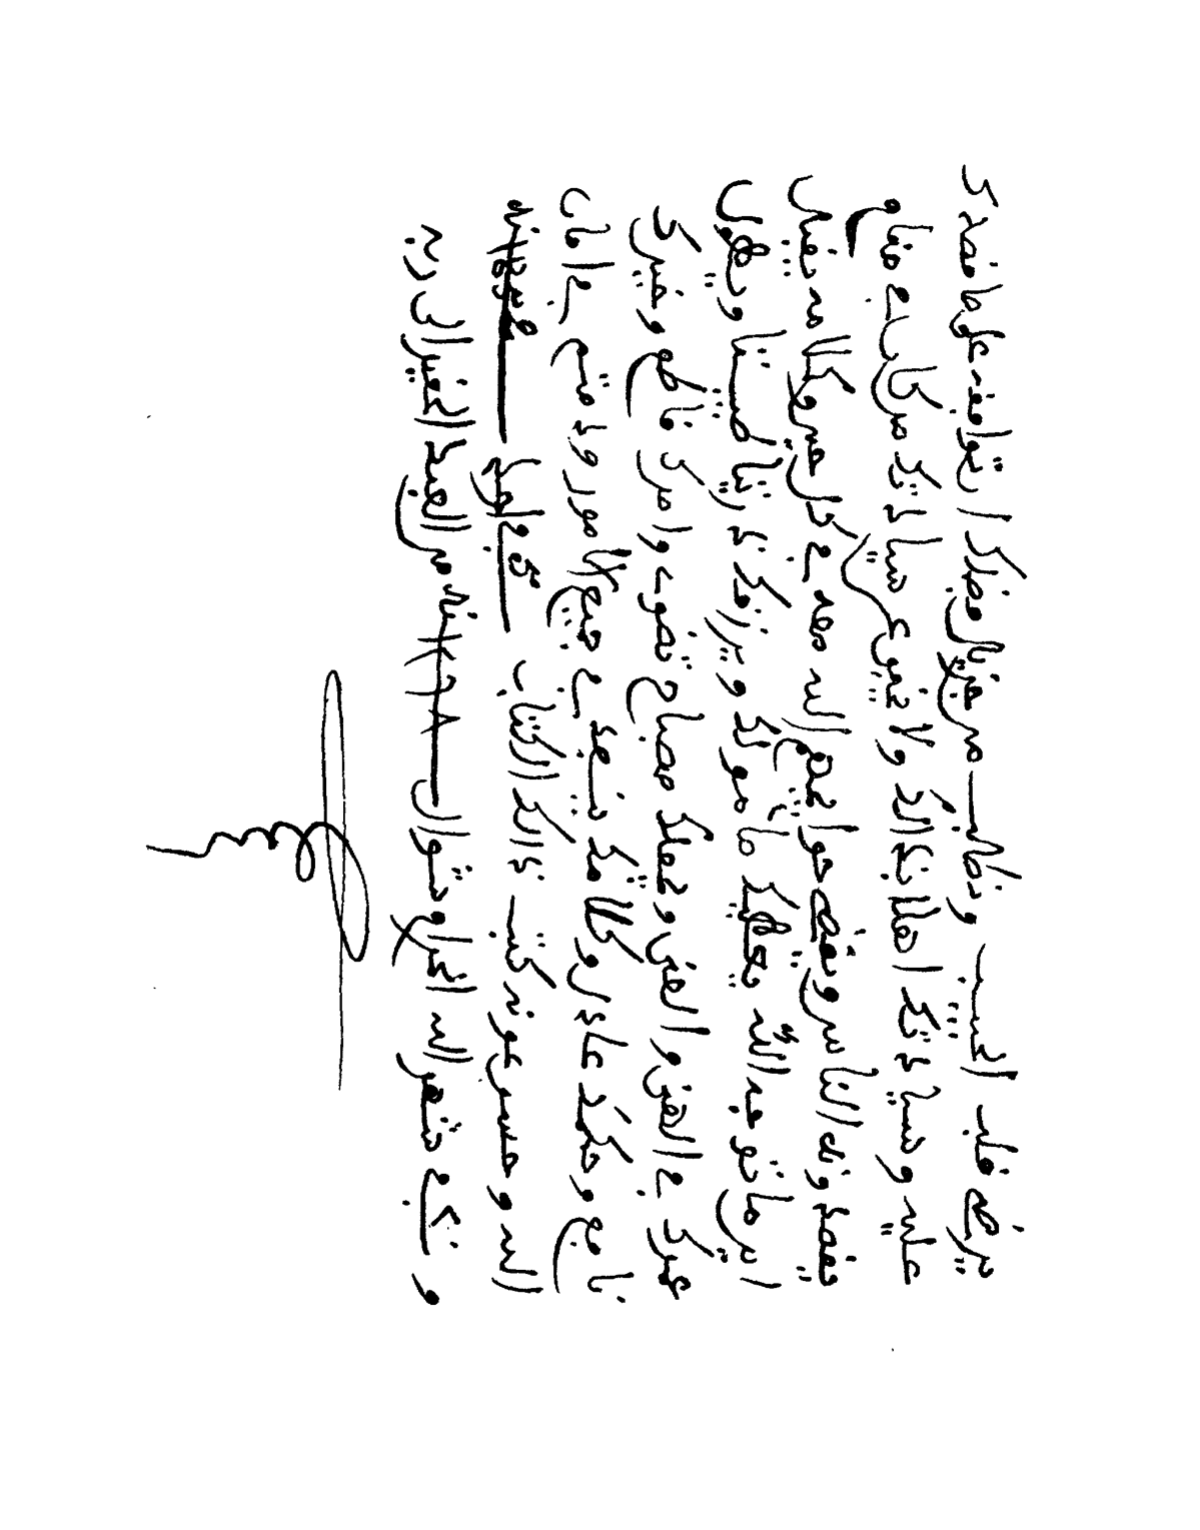 يرضى قلبه الحبيب ونطلب من جزيل فضلك ان توافقه على ما قصدك
عليه وسيادتك اهلا بذالك ولا على سيادتك من كان في مقام
يقصدونه الناس ويقضي حوائجهم الله معه في كل خير وكلامه يقضى
اين ما توجه الله يعطيك ما مولك ويرزقك ذريتا ويطول
عمرك في العز والغنى ويجعلك مصباح تضوي وامرك قاطع وخيرك
نابع وحكمك عادل وكلامك ينفد في جميع الامور في امان
الله وحسن عونه كتب ذالك الكتاب
في شهر الله الحرام شوال من العبد الفقير الى ربه